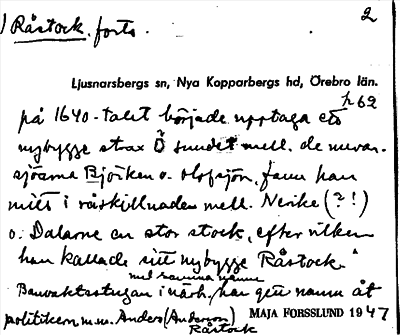 ) Råstock. forts. 2
Ljusnarsbergs sn, Nya Kopparbergs hd, Örebro län.
h 62
på 1640-talet började upptaga ett
nybygge strax Ö sundet mell. de nuvar.
sjöarna Björken o. Olofsjön, fann han
mitt i råskillnaden mell. Nerike (?!)
o. Dalarne en stor stock, efter vilken
han kallade sitt nybygge Råstock."
med samma namn
Banvaktsstugan i närh. har gett namn åt
politikern m.m. Anders (Anderson)
Råstock
MAJA FORSSLUND 1947